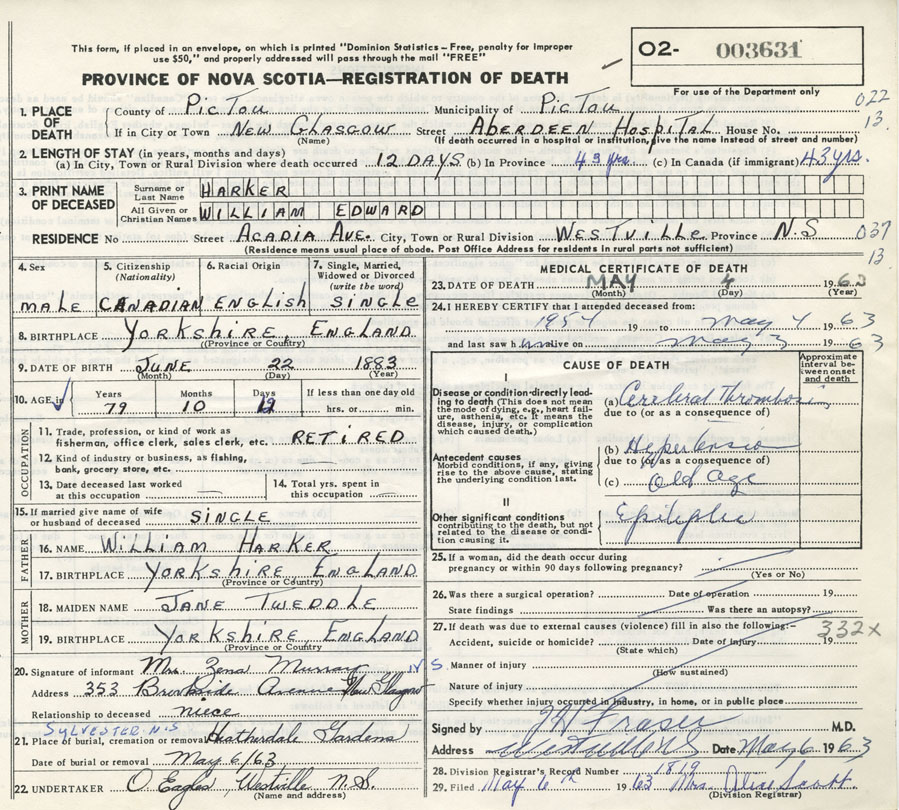 This form, if placed in an envelope, on which is printed "Dominion Statistics - Free, penalty for improper
use $50," and properly addressed will pass through the mail "FREE"
PROVINCE OF NOVA SCOTIA—REGISTRATION OF DEATH
O2- 003631
For use of the Department only
022
13
1. PLACE OF DEATH
County of PICTOU Municipality of PICTOU
If in City or Town NEW GLASGOW Street ABERDEEN HOSPITAL House No.
(Name) (If death occurred in a hospital or institution, give the name instead of street and number)
2. LENGTH OF STAY (in years, months and days)
(a) In City, Town or Rural Division where death occurred 12 DAYS (b) In Province 43 yrs. (c) In Canada (if immigrant) 43 yrs.
3. PRINT NAME OF DECEASED
Surname or Last Name HARKER
All Given or Christian Names WILLIAM EDWARD
RESIDENCE No Street ACADIA AVE. City, Town or Rural Division WESTVILLE Province N.S
037
13
(Residence means usual place of abode. Post Office Address for residents in rural parts not sufficient)
4. Sex MALE
5. Citizenship (Nationality) CANADIAN
6. Racial Origin ENGLISH
7. Single, Married, Widowed or Divorced (write the word) SINGLE
8. BIRTHPLACE YORKSHIRE, ENGLAND
(Province or Country)
9. DATE OF BIRTH JUNE 22 1883
(Month) (Day) (Year)
10. AGE in Years 79 Months 10 Days 12 If less than one day old hrs. or min.
OCCUPATION
11. Trade, profession, or kind of work as fisherman, office clerk, sales clerk, etc. RETIRED
12. Kind of industry or business, as fishing, bank, grocery store, etc.
13. Date deceased last worked at this occupation
14. Total yrs. spent in this occupation
15. If married give name of wife or husband of deceased SINGLE
FATHER
16. NAME WILLIAM HARKER
17. BIRTHPLACE YORKSHIRE ENGLAND
(Province or Country)
MOTHER
18. MAIDEN NAME JANE TWEDDLE
19. BIRTHPLACE YORKSHIRE, ENGLAND
(Province or Country)
20. Signature of informant Mrs. Zena Murray
Address 353 Brookside Avenue New Glasgow N.S.
Relationship to deceased niece
SYLVESTER N.S
21. Place of burial, cremation or removal Heatherdale Gardens
Date of burial or removal May 6/63
22. UNDERTAKER O Eagles, Westville N.S.
(Name and address)
MEDICAL CERTIFICATE OF DEATH
23. DATE OF DEATH MAY 4 1963
(Month) (Day) (Year)
24. I HEREBY CERTIFY that I attended deceased from:
1954 19 to May 4 1963
and last saw him alive on May 3 1963
CAUSE OF DEATH
Approximate interval between onset and death
I
Disease or condition directly leading to death (This does not mean the mode of dying, e.g., heart failure, asthenia, etc. It means the disease, injury, or complication which caused death.)
(a) Cerebral Thrombosis
due to (or as a consequence of)
Antecedent causes
Morbid conditions, if any, giving rise to the above cause, stating the underlying condition last.
(b) Hypertension
due to (or as a consequence of)
(c) Old Age
II
Other significant conditions contributing to the death, but not related to the disease or condition causing it.
25. If a woman, did the death occur during pregnancy or within 90 days following pregnancy?
(Yes or No)
26. Was there a surgical operation? Date of operation 19
State findings Was there an autopsy?
27. If death was due to external causes (violence) fill in also the following:-
332x
Accident, suicide or homicide? Date of injury 19
(State which)
Manner of injury
(How sustained)
Nature of injury
Specify whether injury occurred in industry, in home, or in public place
Signed by J H Fraser M.D.
Address Westville N.S Date May 6 1963
28. Division Registrar's Record Number 1819
29. Filed May 6th 1963 Mrs. Alice Scott
(Division Registrar)